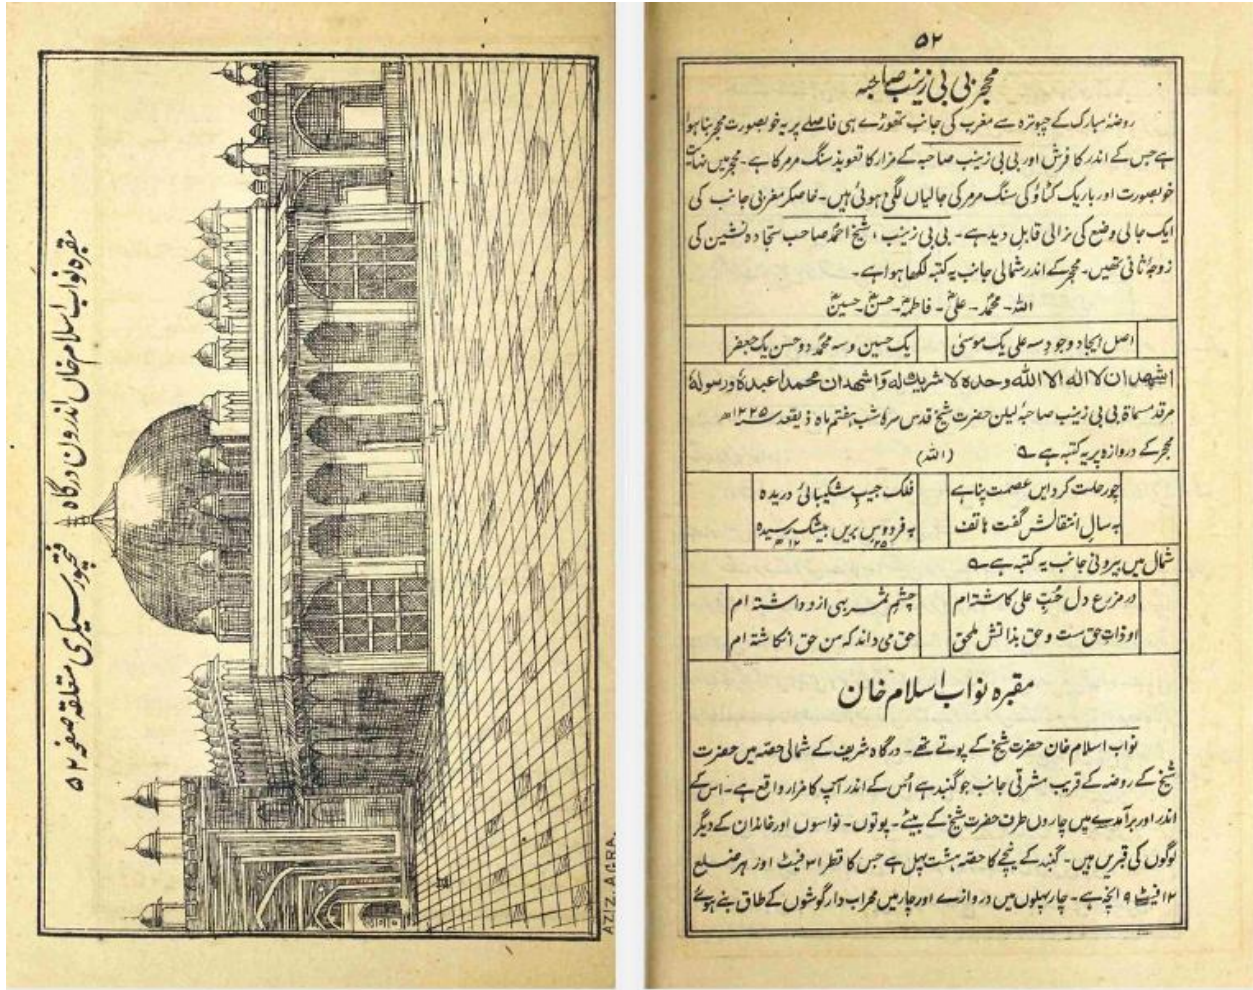 مقبرہ نواب اسلام خاں اندرون درگاہ
فتحپور سیکری متعلقہ صفحہ ۵۲
AZIZ. AGRA.
۵۲
مجربی بی زینب صاحبہ
روضۂ مبارک کے چبوترہ سے مغرب کی جانب تھوڑے ہی فاصلے پر یہ خوبصورت مجر بنا ہوا
ہے جس کے اندر کا فرش اور بی بی زینب صاحبہ کے مزار کا تعویذ سنگ مرمر کا ہے۔ مجر میں نہایت
خوبصورت اور باریک کٹاؤ کی سنگ مرمر کی جالیاں لگی ہوئی ہیں۔ خاصکر مغربی جانب کی
ایک جالی وضع کی نرالی قابل دید ہے۔ بی بی زینب، شیخ احمد صاحب سجادہ نشین کی
زوجۂ ثانی تھیں۔ مجر کے اندر شمالی جانب یہ کتبہ لکھا ہوا ہے۔
اللہ۔ محمدؐ۔ علیؓ۔ فاطمہؓ۔ حسنؓ۔ حسینؓ
اصل ایجاد وجود سہ علی یک موسیٰ یک حسین و سہ محمد دو حسن یک جعفر
اشهد ان لا اله الا الله وحده لا شريك له و اشهد ان محمدا عبده ورسوله
مرقد مسماة بی بی زینب صاحبہ لیلن حضرت شیخ قدس سرہ شب ہفتم ماہ ذیقعد سنہ ۱۲۲۵ھ
مجر کے دروازہ پر یہ کتبہ ہے (اللہ)
چو رحلت کرد ایں عصمت پناہے فلک جیب شکیبائی دریدہ
بہ سال انتقالش گفت ہاتف بہ فردوس بریں بیشک رسیدہ
۱۲۲۵ھ
شمال میں بیرونی جانب یہ کتبہ ہے
در مزرع دل حُبِّ علی کاشتہ ام چشم ثمر بہی ازو داشتہ ام
او ذات حق ست و حق بذاتش ملحق حق می داند کہ من حق انگاشتہ ام
مقبرہ نواب اسلام خان
نواب اسلام خان حضرت شیخ کے پوتے تھے۔ درگاہ شریف کے شمالی حصہ میں حضرت
شیخ کے روضہ کے قریب مشرقی جانب جو گنبد ہے اُس کے اندر آپ کا مزار واقع ہے۔ اس کے
اندر اور برآمدے میں چاروں طرف حضرت شیخ کے بیٹے۔ پوتوں۔ نواسوں اور خاندان کے دیگر
لوگوں کی قبریں ہیں۔ گنبد کے نیچے کا حصہ ہشت پہل ہے جس کا قطر ۳۱ فیٹ اور ہر ضلع
۱۲ فیٹ ۹ انچہ ہے۔ چار پہلوں میں دروازے اور چار میں محراب دار گوشوں کے طاق بنے ہوئے